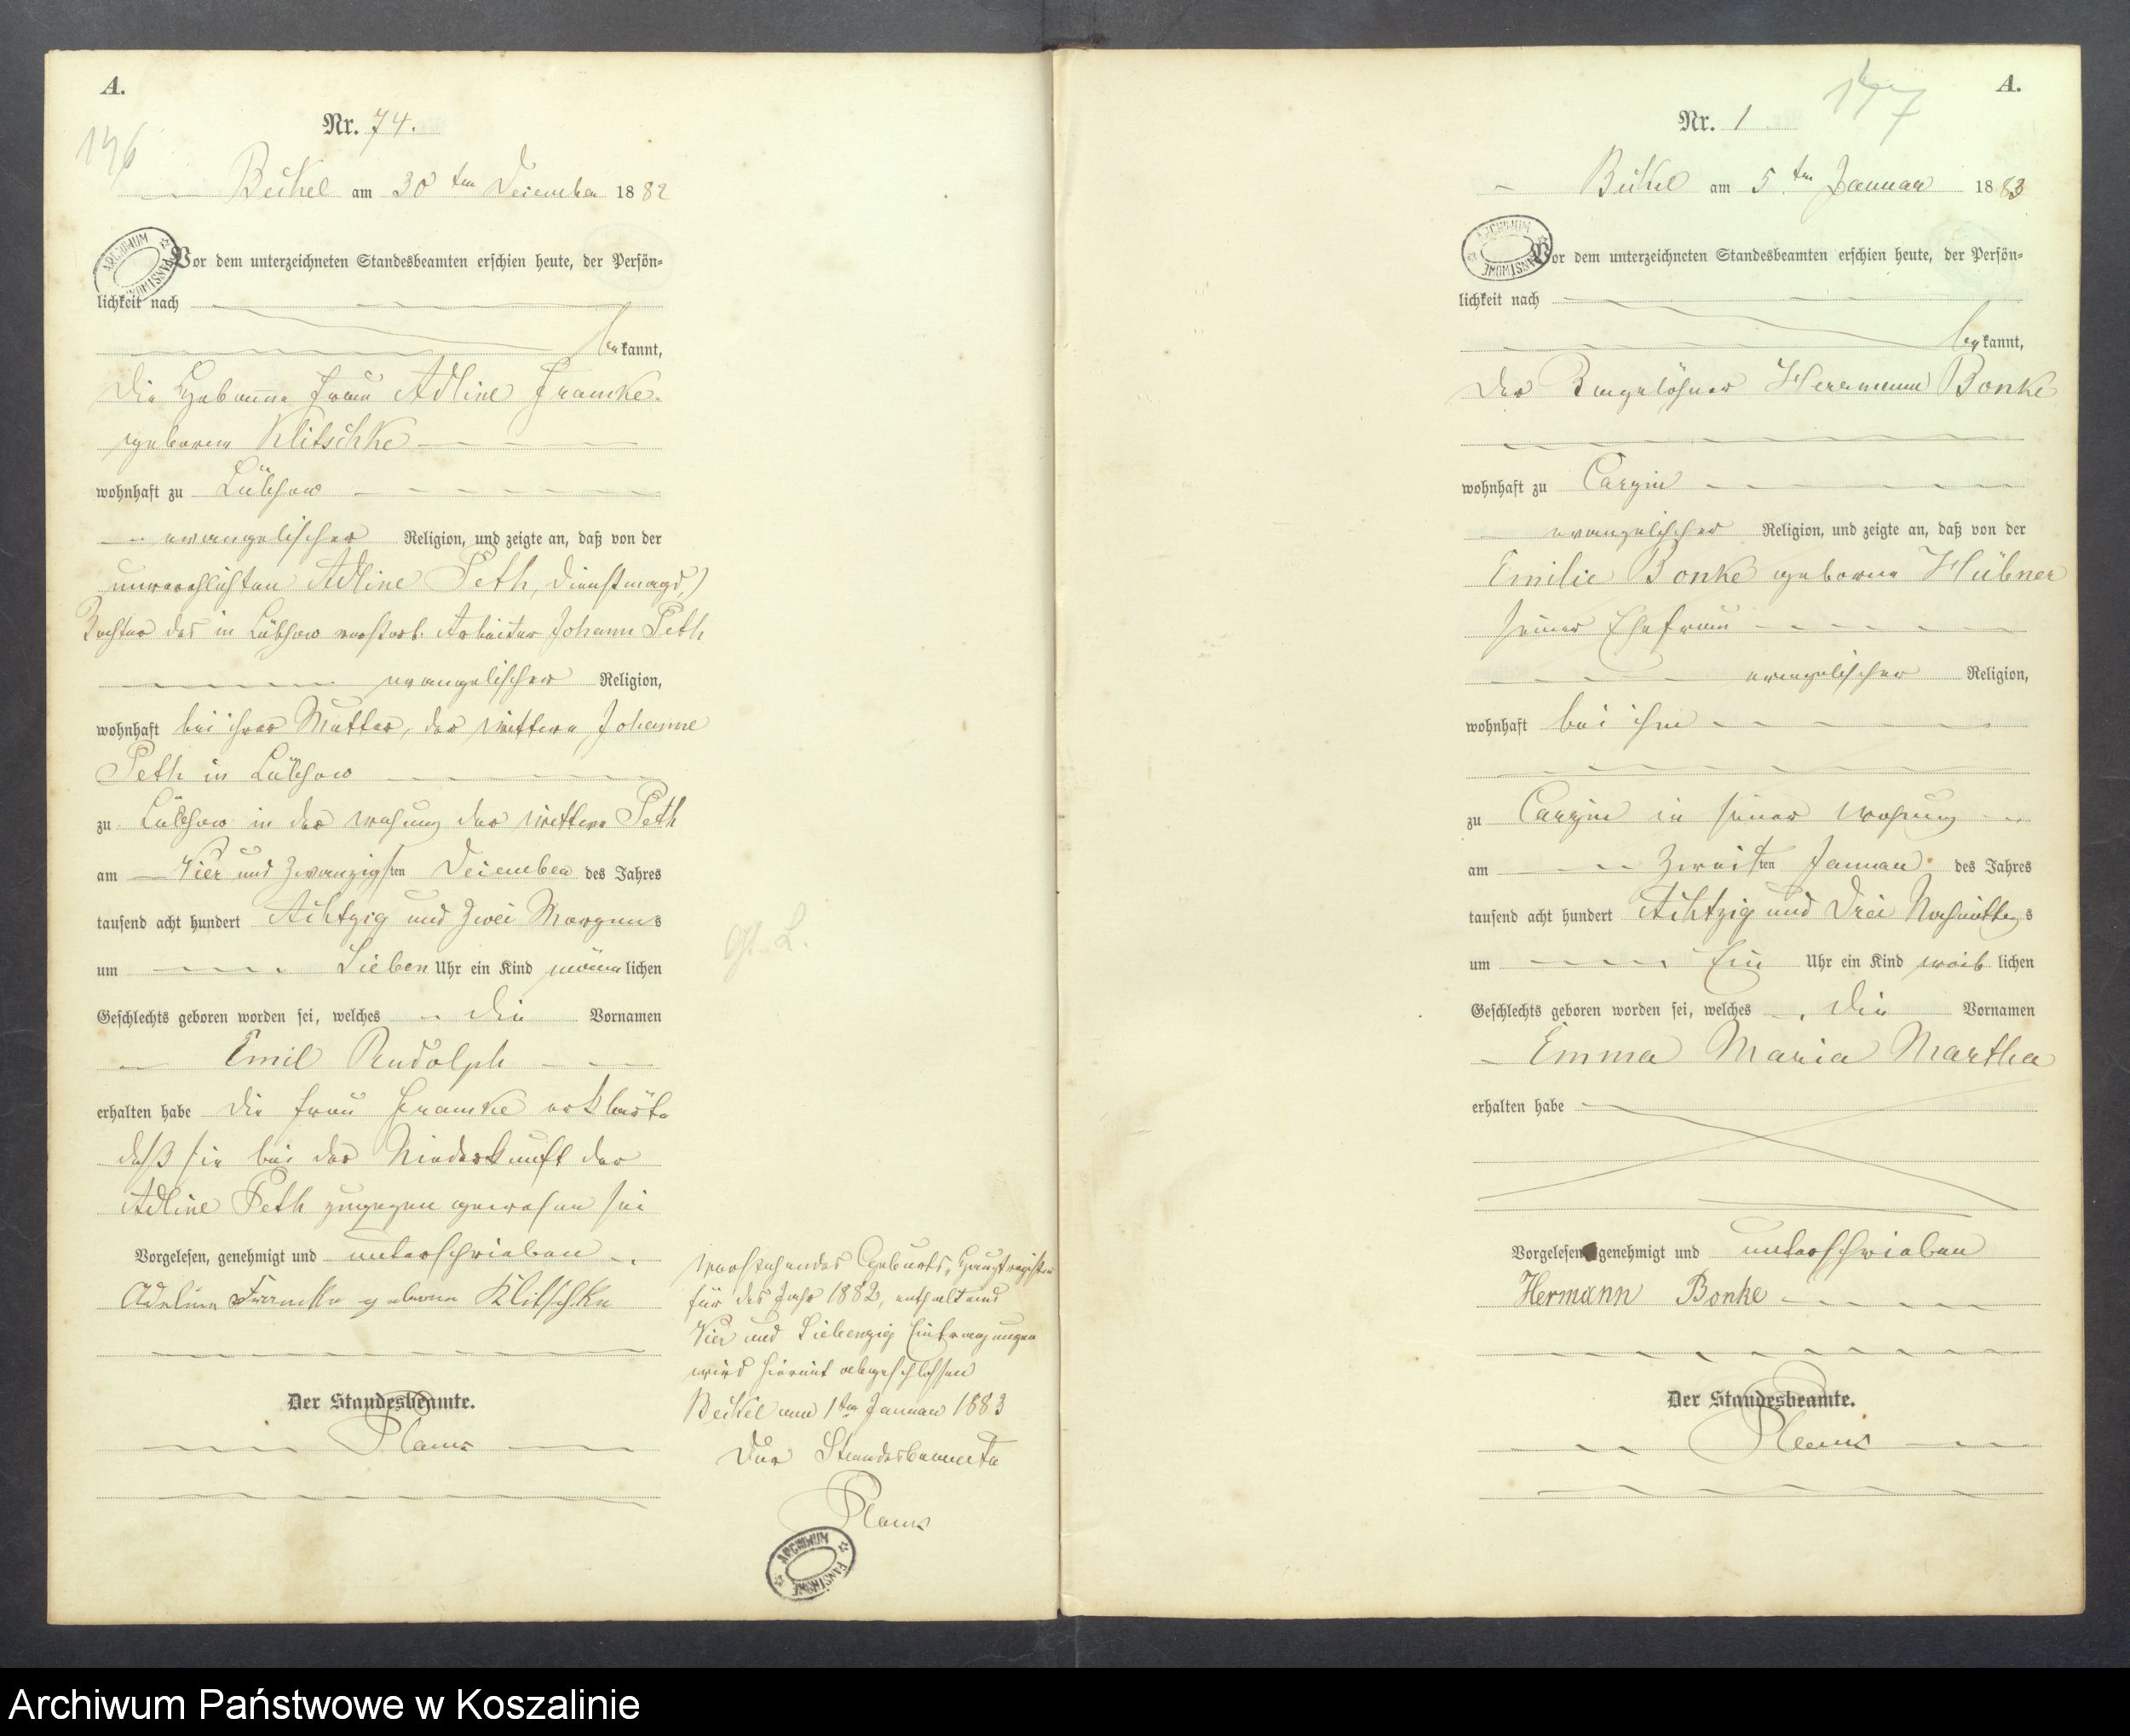 A.
Nr. 74.
146
Beckel am 30ten Dezember 1882
ARCHIWUM PAŃSTWOWE
Vor dem unterzeichneten Standesbeamten erschien heute, der Persön-
lichkeit nach
bekannt,
die Hebamme Frau Adline Framke
geborene Klitschke
wohnhaft zu Lübzow
evangelischer Religion, und zeigte an, daß von der
unverehlichten Adline Peth, Dienstmagd,
Tochter des in Lübzow verstorb. Arbeiter Johann Peth
evangelischer Religion,
wohnhaft bei ihrer Mutter, der Wittwe Johanne
Peth in Lübzow
zu Lübzow in der Wohnung der Wittwe Peth
am Vier und Zwanzigsten Dezember des Jahres
tausend acht hundert Achtzig und Zwei Morgens
um Sieben Uhr ein Kind männlichen
Geschlechts geboren worden sei, welches die Vornamen
Emil Rudolph
erhalten habe die Frau Framke erklärte
daß sie bei der Niederkunft der
Adline Peth zugegen gewesen sei
Vorgelesen, genehmigt und unterschrieben
Adeline Framke geborne Klitschke
Der Standesbeamte.
Gf. L.
Vorstehendes Geburts-Hauptregister
für das Jahr 1882, enthaltend
Vier und Siebenzig Eintragungen
wird hiermit abgeschlossen
Beckel am 1ten Januar 1883
Der Standesbeamte
ARCHIWUM PAŃSTWOWE
A.
147
Nr. 1
Beckel am 5ten Januar 1883
ARCHIWUM PAŃSTWOWE
Vor dem unterzeichneten Standesbeamten erschien heute, der Persön-
lichkeit nach
bekannt,
Der Tagelöhner Herrmann Bonke
wohnhaft zu Carzin
evangelischer Religion, und zeigte an, daß von der
Emilie Bonke geborne Hübner
seiner Ehefrau
evangelischer Religion,
wohnhaft bei ihm
zu Carzin in seiner Wohnung
am Zweiten Januar des Jahres
tausend acht hundert Achtzig und Drei Nachmittags
um Ein Uhr ein Kind weiblichen
Geschlechts geboren worden sei, welches die Vornamen
Emma Maria Martha
erhalten habe
Vorgelesen, genehmigt und unterschrieben
Hermann Bonke
Der Standesbeamte.
Archiwum Państwowe w Koszalinie